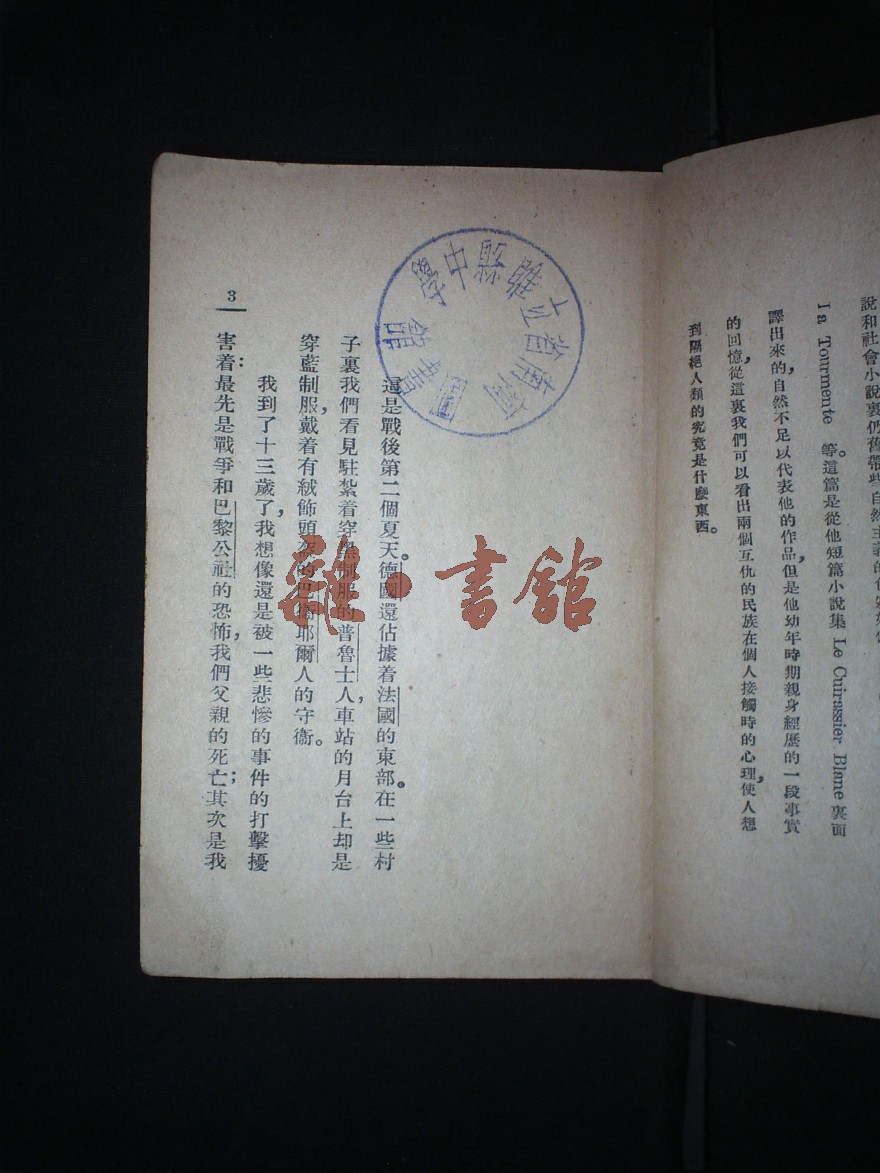 說和社會小說裏仍舊帶些自然主義的
la Tourmente 等。這篇是從他短篇小說集 Le Cuirassier Blame 裏面
譯出來的,自然不足以代表他的作品,但是他幼年時期親身經歷的一段事實
的回憶,從這裏我們可以看出兩個互仇的民族在個人接觸時的心理,使人想
到隔絕人類的究竟是什麼東西。
省立雎縣中學
圖書館
這是戰後第二個夏天。德國還佔據着法國的東部。在一些村
子裏我們看見駐紮着穿黑制服的普魯士人,車站的月台上却是
穿藍制服戴着有絨飾頭盔的巴衞耶爾人的守衞。
我到了十三歲了,我想像還是被一些悲慘的事件的打擊擾
害着:最先是戰爭和巴黎公社的恐怖,我們父親的死亡;其次是我
3
雜·書館